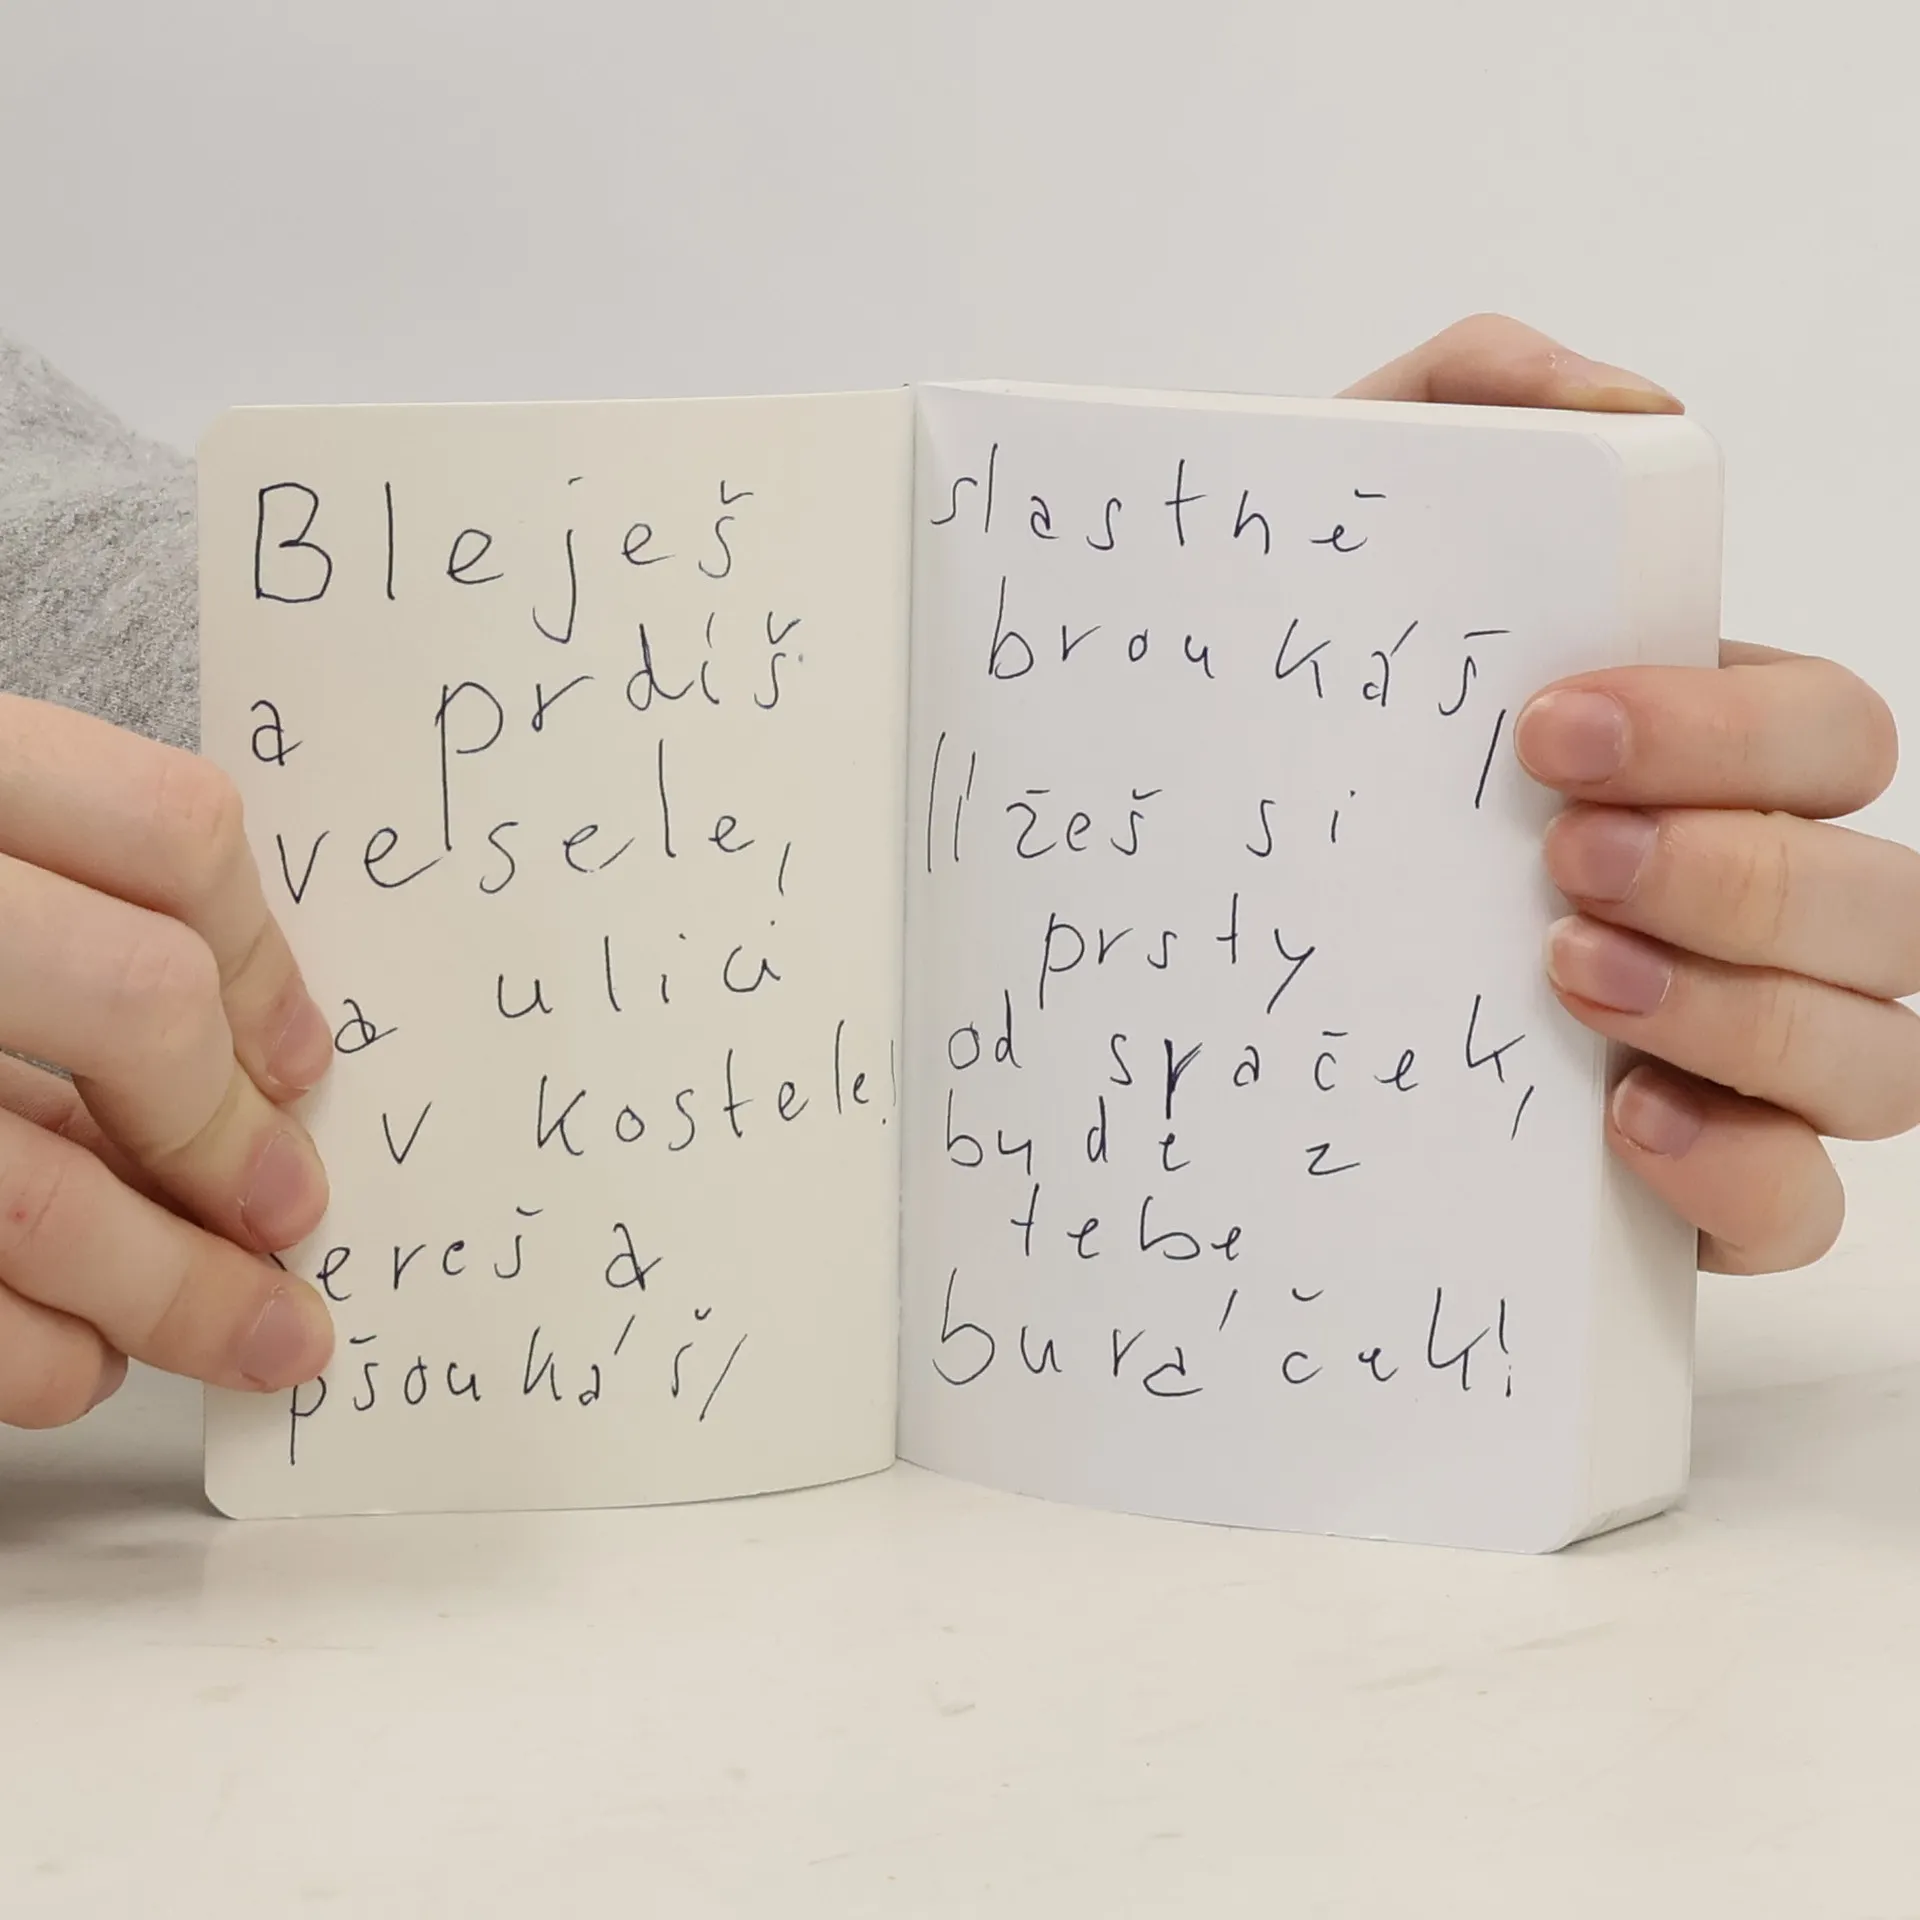 Bleješ
a prdíš
vesele,
a ulici
v kostele!
ereš a
pšoukáš,
slastně
broukáš,
lížeš si
prsty
od sraček,
bude z
tebe
buráček!